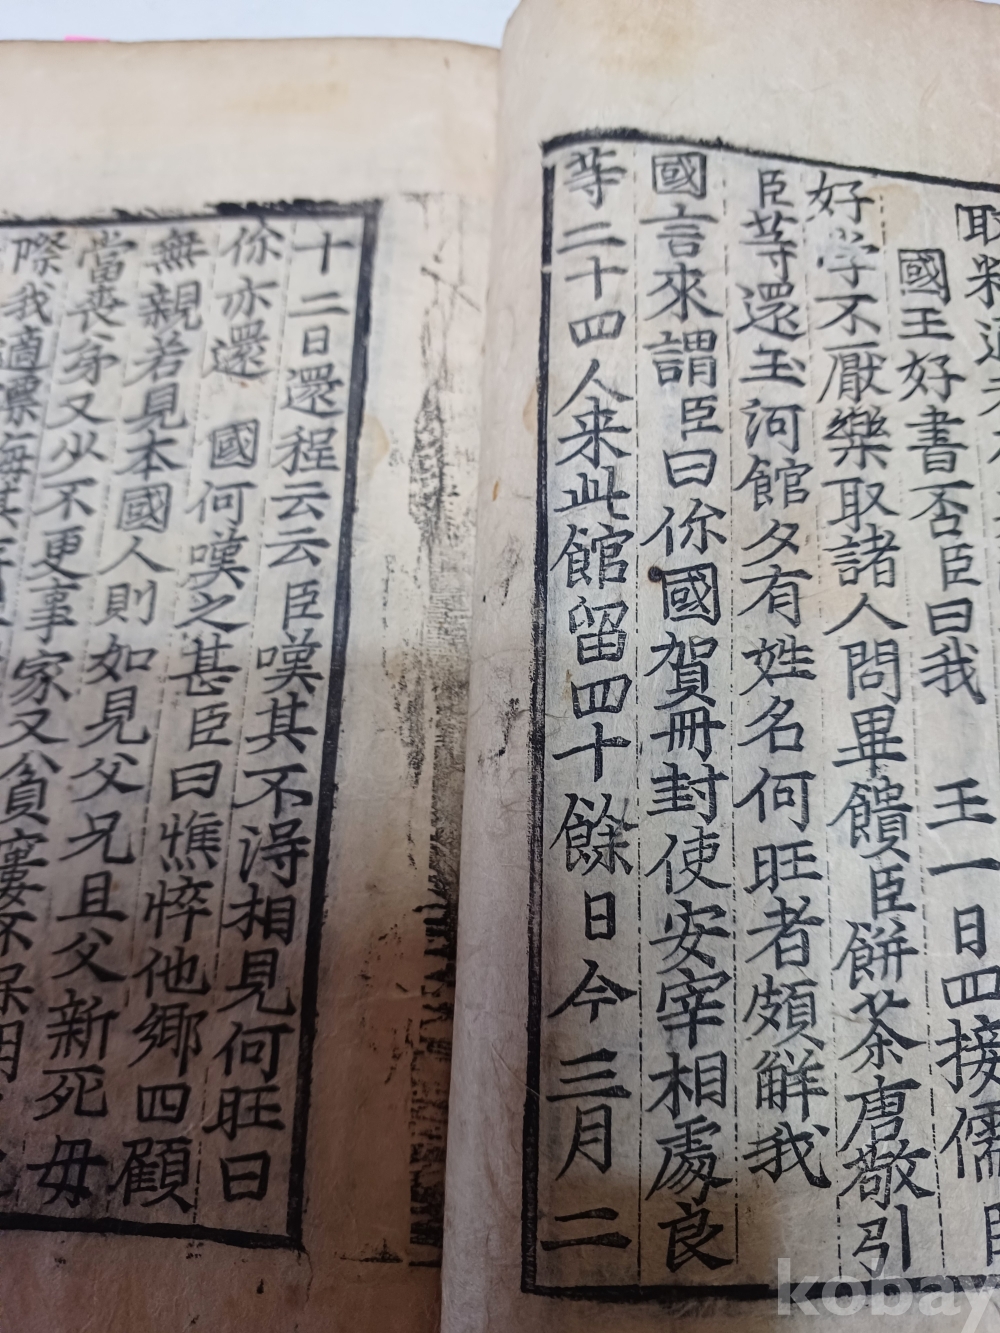 取粮
國王好書否臣曰我 王一日四接儒
好学不厭樂取諸人問畢饋臣餅茶唐敬引
臣等還玉河館夕有姓名何旺者頗解我
國言來謂臣曰你國賀冊封使安宰相處良
等二十四人来此館留四十餘日今三月二
十二日還程云云臣嘆其不得相見何旺曰
你亦還 國何嘆之甚臣曰憔悴他鄉四顧
無親若見本國人則如見父兄且父新死毋
當喪弟又少不更事家又貧窶
際我適漂海其
kobay